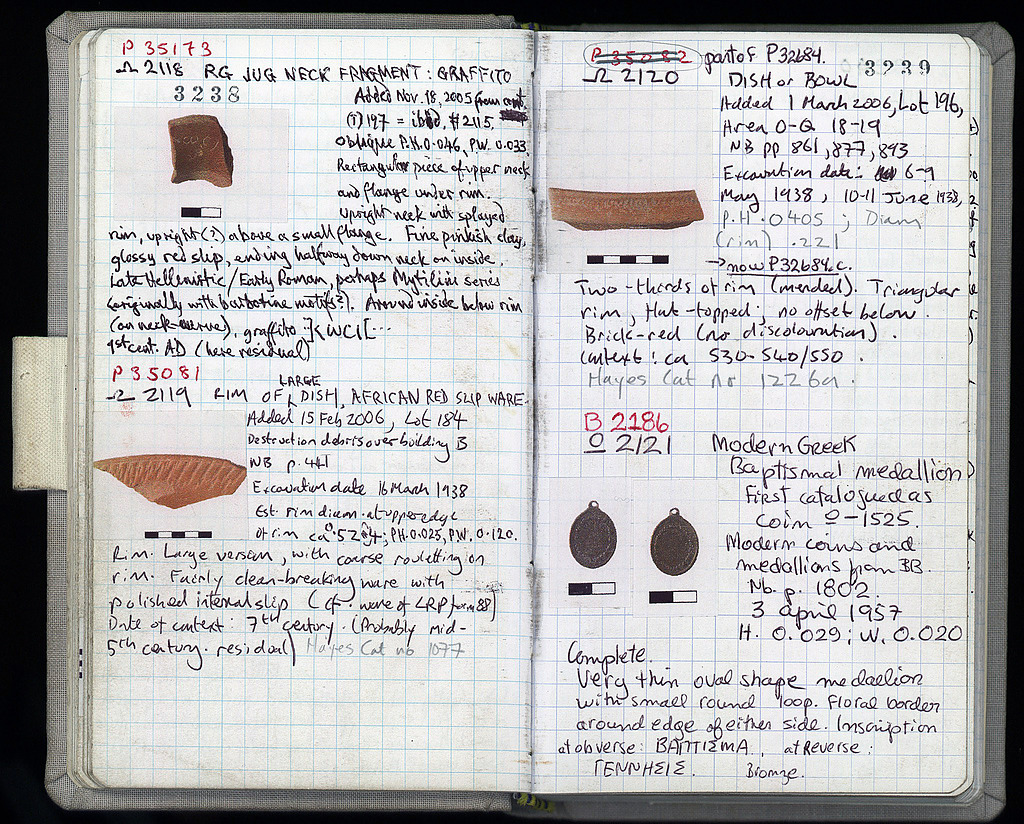 P 35173
Ω 2118 RG JUG NECK FRAGMENT : GRAFFITO
3238
Added Nov. 18, 2005 from cont.
(T) 197 = ibid, # 2115.
oblique P.H. 0.046, P.W. 0.033.
Rectangular piece of upper neck
and flange under rim.
Upright neck with splayed
rim, upright(?) above a small flange. Fine pinkish clay,
glossy red slip, ending halfway down neck on inside.
Late Hellenistic/Early Roman, perhaps Mytilini series
(originally with barbotine motifs?). Around inside below rim
(on neck-curve), graffito
1st cent. AD (here residual)
P 35081
Ω 2119 RIM OF LARGE DISH, AFRICAN RED SLIP WARE.
Added 15 Feb 2006, Lot 184
Destruction debris over building B
NB p. 441
Excavation date 16 March 1938
Est. rim diam. at upper edge
of rim ca 0.52-4; P.H. 0.025, P.W. 0.120.
Rim. Large version, with coarse rouletting on
rim. Fairly clean-breaking ware with
polished internal slip (cf. ware of LRP form 88)
Date of context: 7th century. (Probably mid-
5th century. residual) Hayes Cat no 1077
P 35082 part of P32684.
Ω 2120 3239
DISH or BOWL
Added 1 March 2006, Lot 196,
Area O-Q 18-19
NB pp 861, 877, 893
Excavation date: 6-9
May 1938, 10-11 June 1938,
P.H .0405 ; Diam
(rim) .221
→ now P32684c.
Two-thirds of rim (mended). Triangular
rim, flat-topped, no offset below.
Brick-red (no discolouration).
Context: ca 530-540/550.
Hayes Cat no 1226a.
B 2186
O 2121 Modern Greek
Baptismal medallion
First catalogued as
coin O-1525.
Modern coins and
medallions from BB.
Nb. p. 1802.
3 april 1957
H. 0.029; W. 0.020
Complete.
Very thin oval shape medallion
with small round loop. Floral border
around edge of either side. Inscription
at obverse: ΒΑΠΤΙΣΜΑ, at Reverse:
ΓΕΝΝΗΣΙΣ. Bronze.